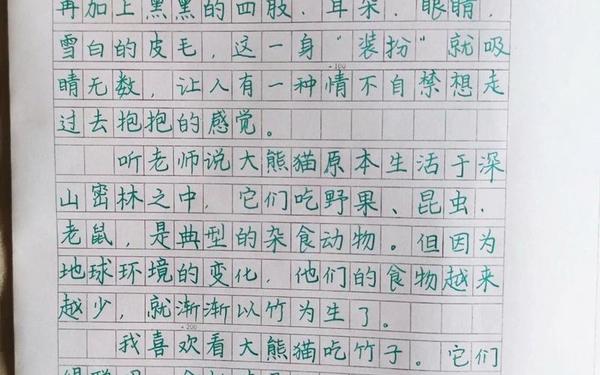 再加上黑黑的四肢．耳朵．眼睛．
雪白的皮毛，这一身“装扮”就吸
睛无数，让人有一种情不自禁想走
·100
过去抱抱的感觉。
听老师说大熊猫原本生活于深
山密林之中，它们吃野果、昆虫．
老鼠，是典型的杂食动物。但因为
地球环境的变化，他们的食物越来
越少，就渐渐以竹为生了。
·200
我喜欢看大熊猫吃竹子。它们